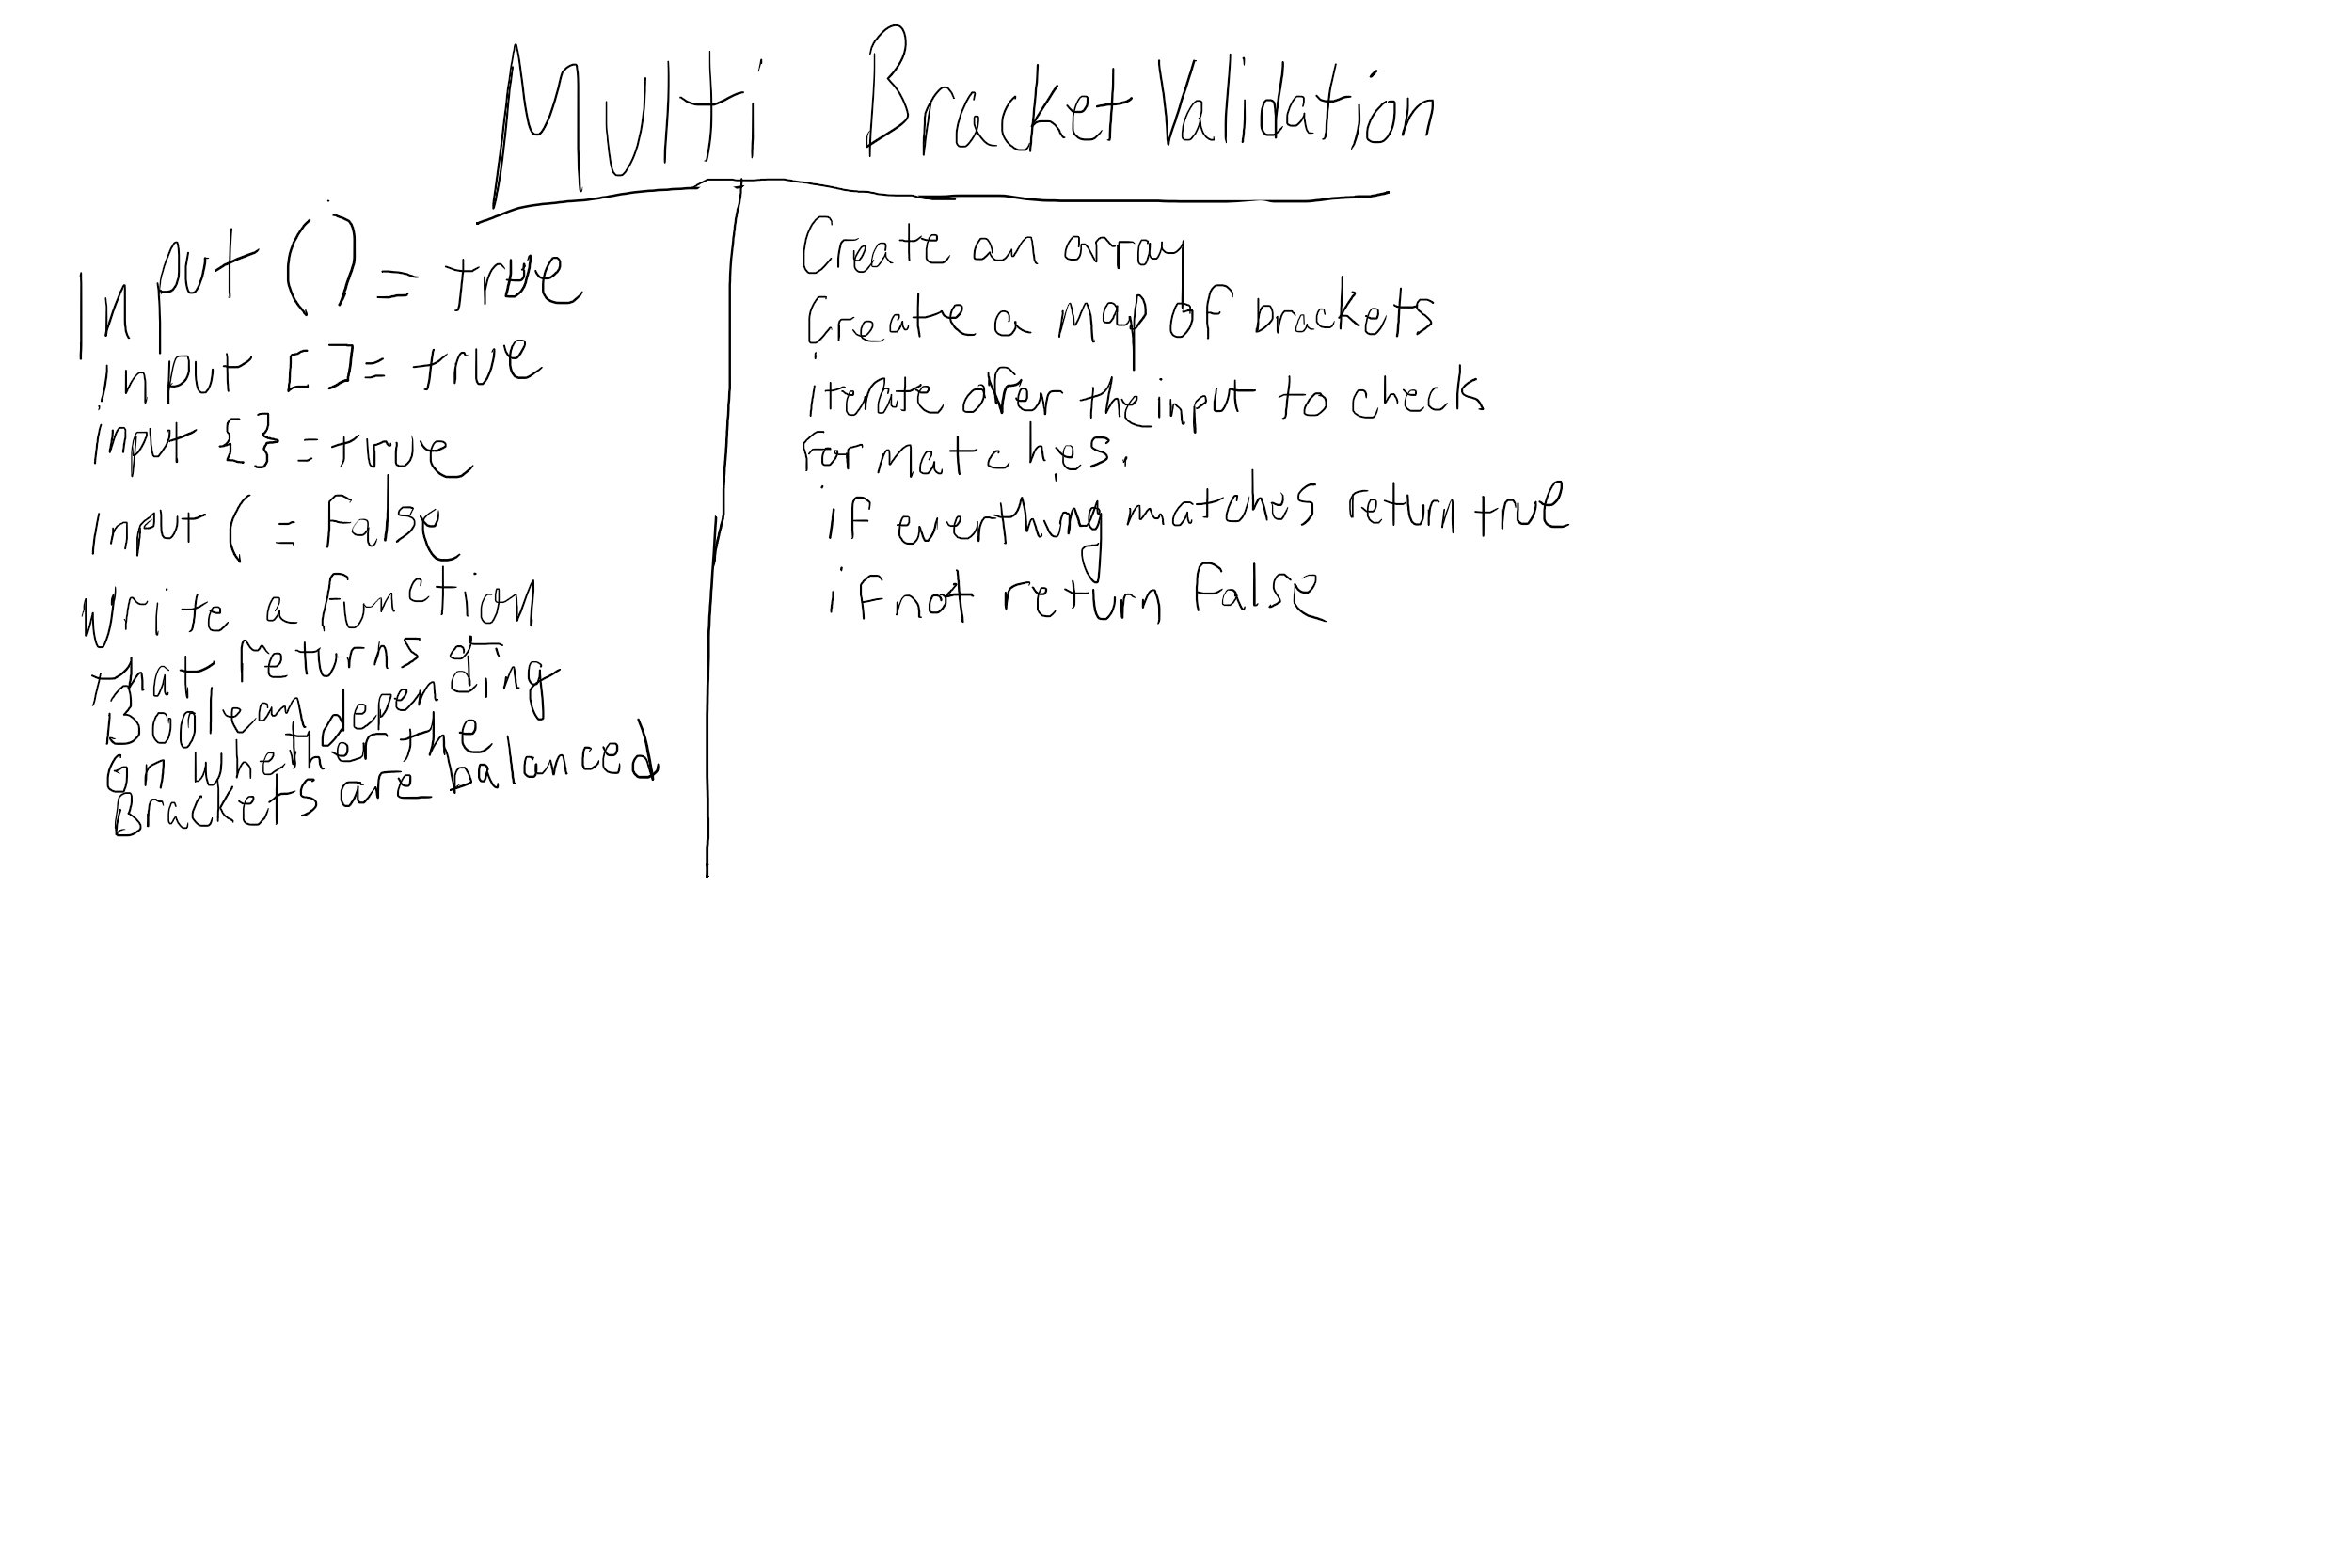 Multi Bracket Validation
Input () = true
input [] = true
input {} = true
input ( = False
Write a function
that returns a
Boolean depending
on whether the
Brackets are balanced
Create an array
Create a map of brackets
iterate over the input to check
For matches.
if everthing matches return true
if not return False